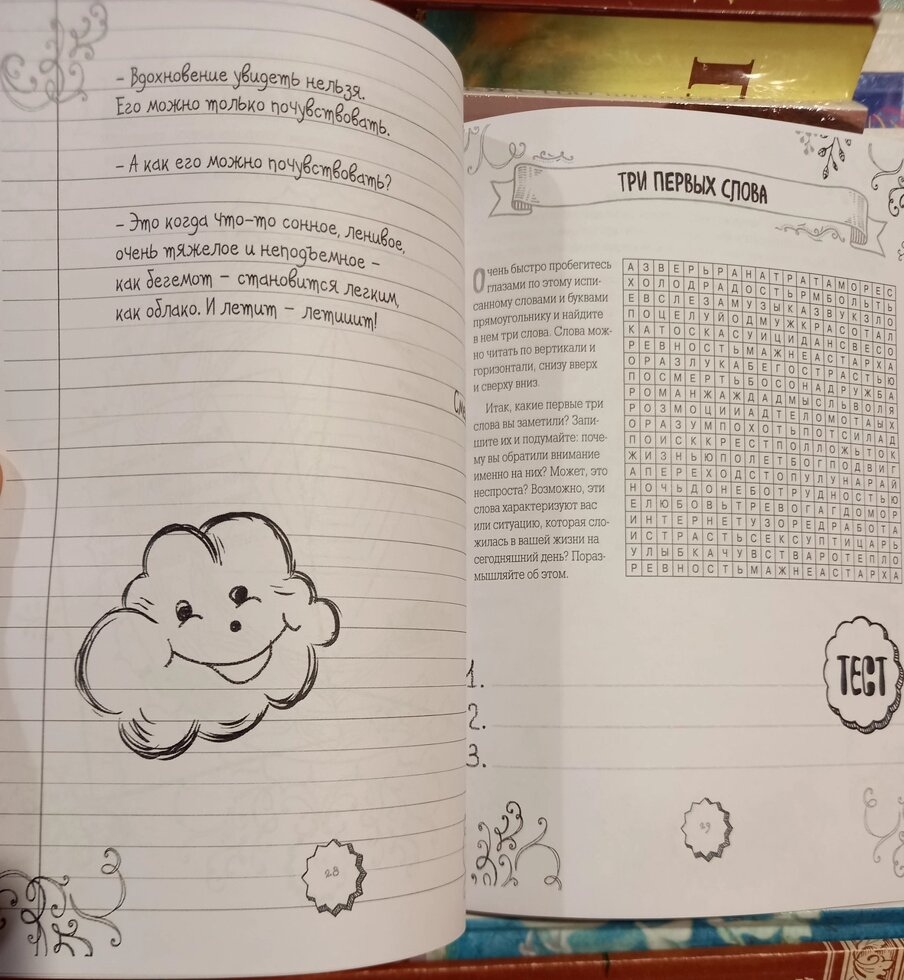 – Вдохновение увидеть нельзя.
Его можно только почувствовать.
– А как его можно почувствовать?
– Это когда что-то сонное, ленивое,
очень тяжелое и неподъемное –
как бегемот – становится легким,
как облако. И летит – летииит!
28
ТРИ ПЕРВЫХ СЛОВА
Очень быстро пробегитесь
глазами по этому испи-
санному словами и буквами
прямоугольнику и найдите
в нем три слова. Слова мож-
но читать по вертикали и
горизонтали, снизу вверх
и сверху вниз.
Итак, какие первые три
слова вы заметили? Запи-
шите их и подумайте: поче-
му вы обратили внимание
именно на них? Может, это
неспроста? Возможно, эти
слова характеризуют вас
или ситуацию, которая сло-
жилась в вашей жизни на
сегодняшний день? Пораз-
мышляйте об этом.
АЗВЕРЬРАНАТРАТАМОРЕС
ХОЛОДРАДОСТЬРМБОЛЬТЬ
ЕВСЛЕЗАМУЗЫКАЗВУКЗЛО
ПОЦЕЛУЙОДМУЖКРАСОТАЛ
КАТОСКАСУИЦИДАНСВЕСО
РЕВНОСТЬМАЖНЕАСТАРХА
ОРАЗЛУКАБЕГОСТРАСТЬЮ
ПОСМЕРТЬБОСОНАДРУЖБА
РОМАНЖАЖДАДМЫСЛЬВОЛЯ
РОЗМОЦИИАДТЕЛОМОТАЫХ
ОРАЗУМПОХОТЬПОТСИЛАД
ПОИСККРЕСТПОЛЛОЖЬТОК
ЖИЗНЬЮПОЛЕТБОГПОДВИГ
АПЕРЕХОДСТОПУЛУНАРАЙ
НОЧЬДОНЕБОТРУДНОСТЬЮ
ЕЛЮБОВЬТРЕВОГАГДОМОР
ИНТЕРНЕТУЗОРЕДРАБОТА
ИСТРАСТЬСЕКСУПТИЦАРЬ
УЛЫБКАЧУВСТВАРОТЕПЛО
РЕВНОСТЬМАЖНЕАСТАРХА
1.
2.
3.
ТЕСТ
29